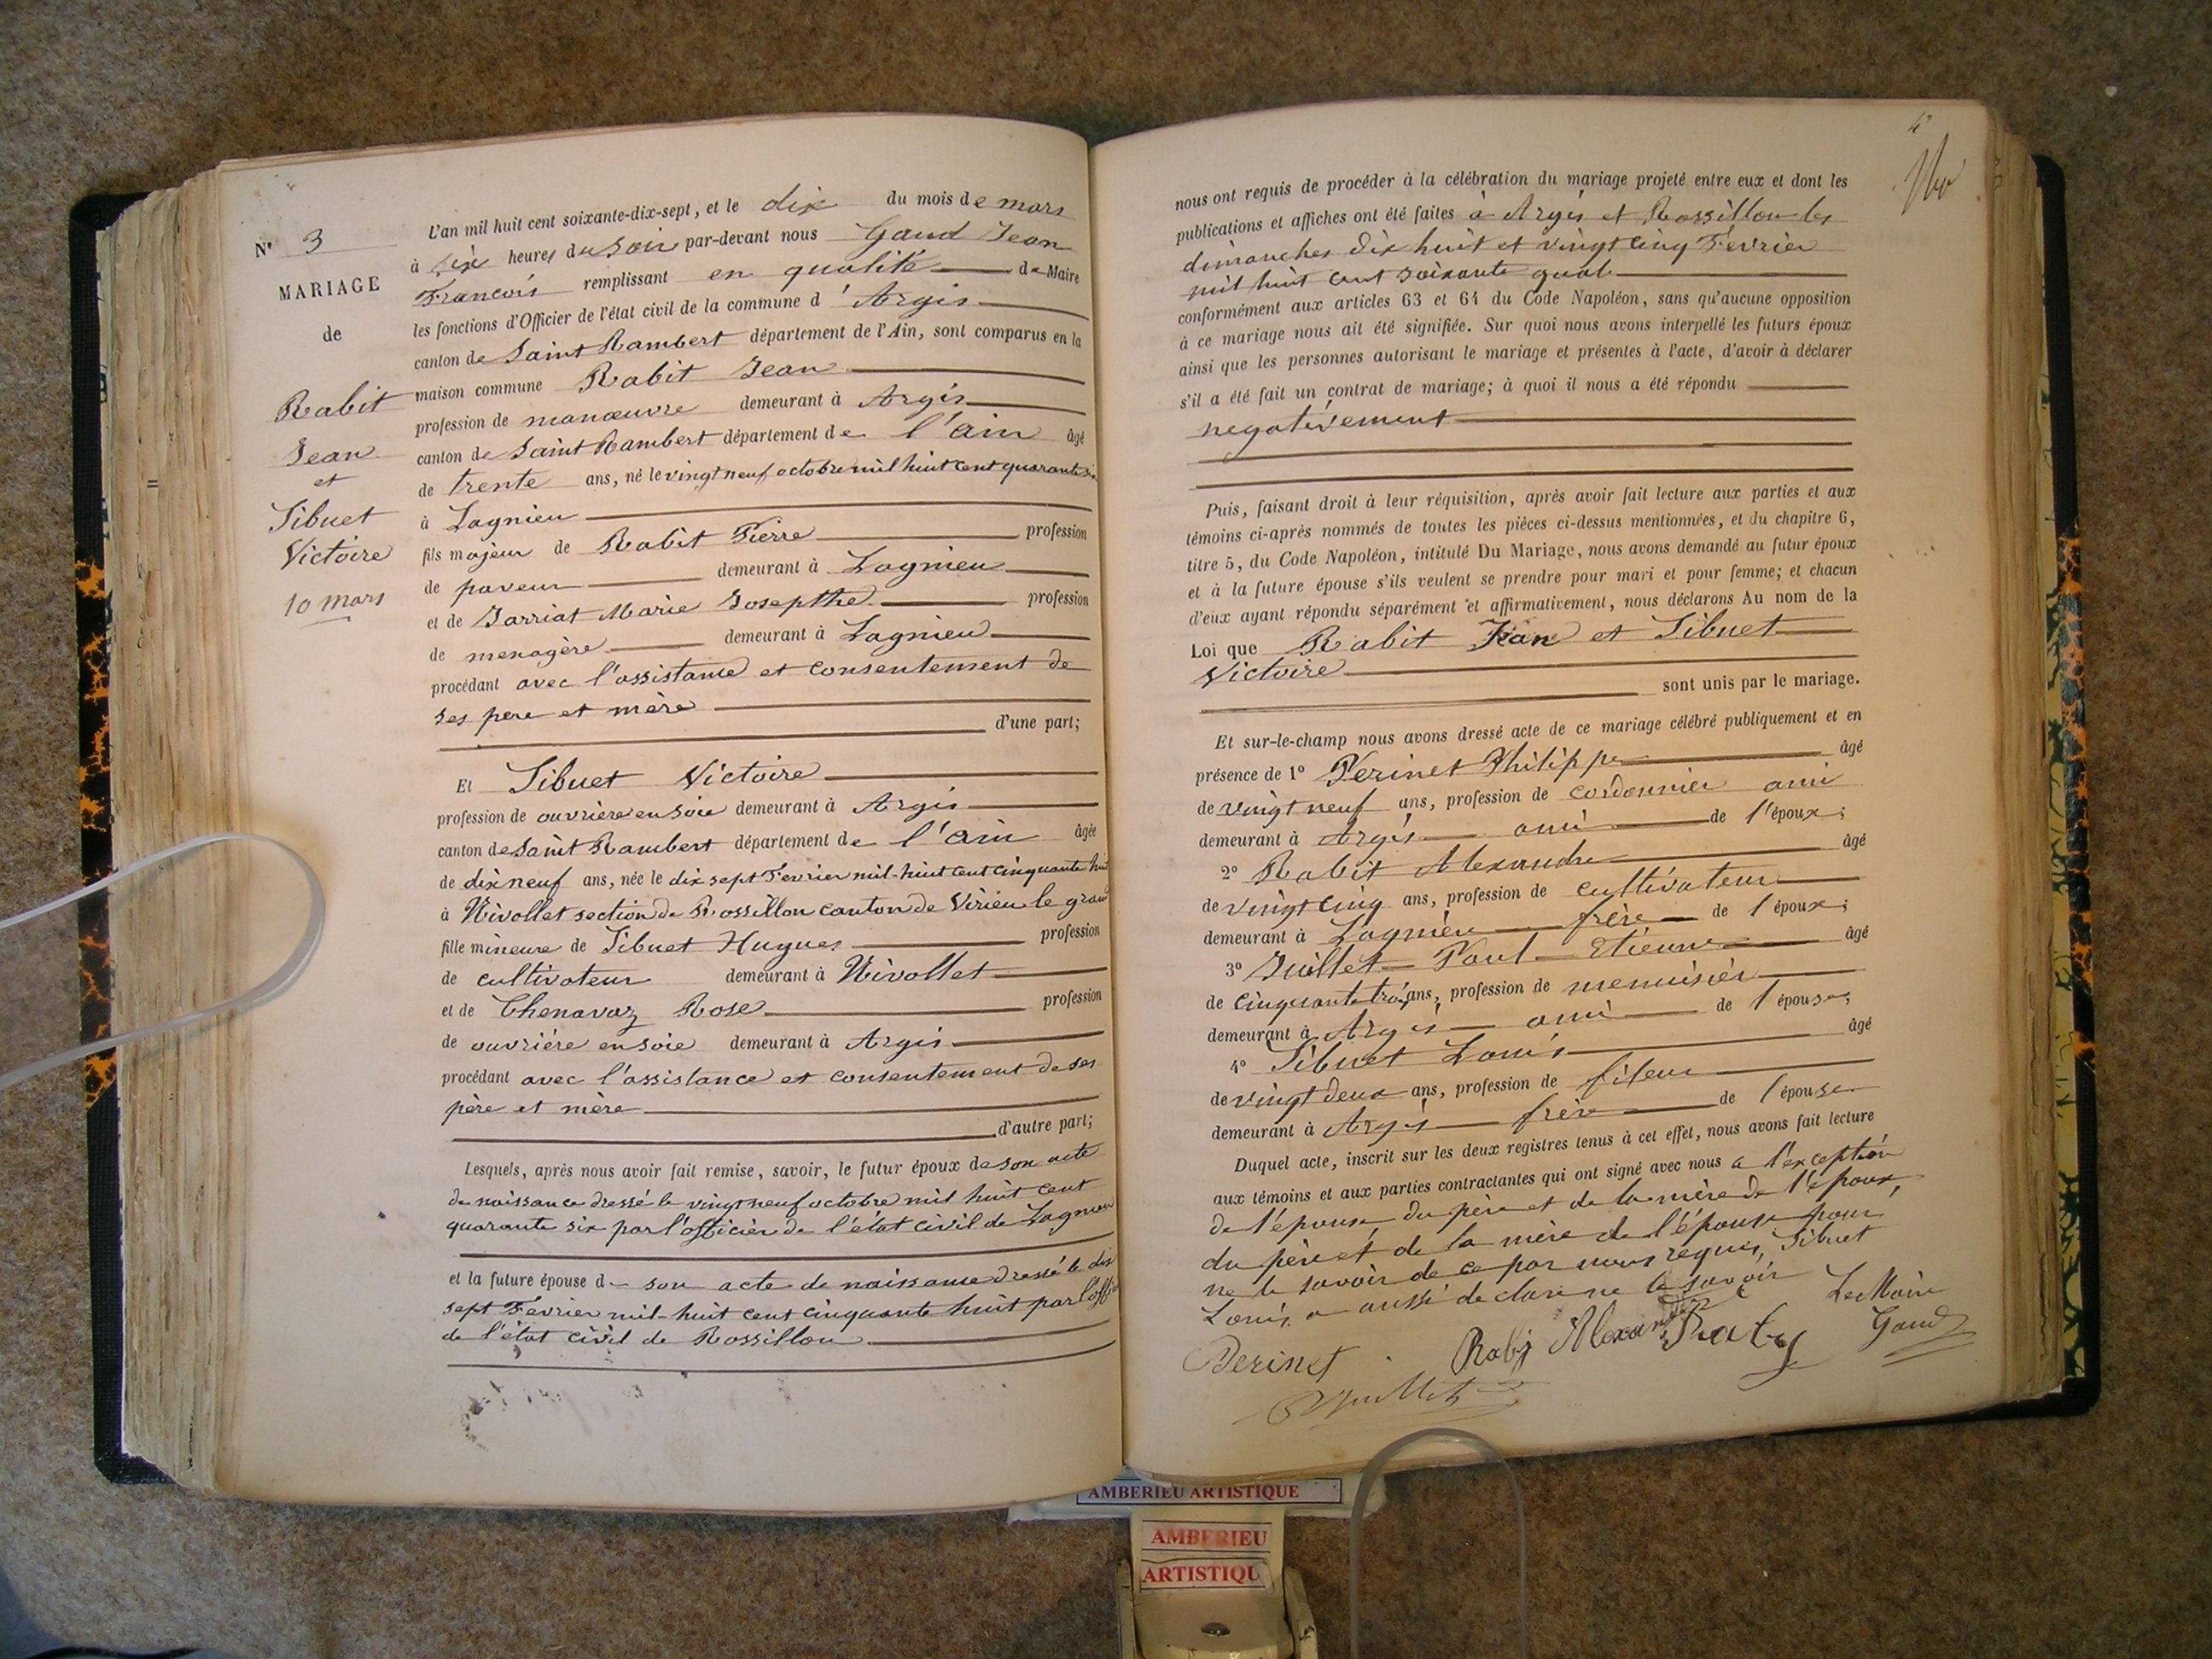 N° 3
MARIAGE
de
Rabit
Jean
et
Sibuet
Victoire
10 mars
L'an mil huit cent soixante-dix-sept, et le dix du mois de mars
à six heures du soir par-devant nous Gaud Jean
Francois remplissant en qualité de Maire
les fonctions d'Officier de l'état civil de la commune d'Argis
canton de Saint Rambert département de l'Ain, sont comparus en la
maison commune Rabit Jean
profession de manœuvre demeurant à Argis
canton de Saint Rambert département de l'ain âgé
de trente ans, né le vingt neuf octobre mil huit cent quarante six
à Lagnieu
fils majeur de Rabit Pierre profession
de paveur demeurant à Lagnieu
et de Jarriat Marie Josepthe profession
de menagère demeurant à Lagnieu
procédant avec l'assistance et consentement de
ses pere et mère
d'une part;
Et Sibuet Victoire
profession de ouvrière en soie demeurant à Argis
canton de Saint Rambert département de l'ain âgée
de dix neuf ans, née le dix sept Fevrier mil-huit cent cinquante huit
à Nivollet section de Rossillon canton de Virieu le grand
fille mineure de Sibuet Hugues profession
de cultivateur demeurant à Nivollet
et de Chenavaz Rose profession
de ouvrière en soie demeurant à Argis
procédant avec l'assistance et consentement de ses
père et mère
d'autre part;
Lesquels, après nous avoir fait remise, savoir, le futur époux de son acte
de naissance dressé le vingt neuf octobre mil huit cent
quarante six par l'officier de l'état civil de Lagnieu
et la future épouse d- son acte de naissance dressé le dix
sept Fevrier mil-huit cent cinquante huit par l'offi
de l'état civil de Rossillon
4
nous ont requis de procéder à la célébration du mariage projeté entre eux et dont les
publications et affiches ont été faites à Argis et Rossillon les
dimanches dix huit et vingt cinq Fevrier
mil huit cent soixante
conformément aux articles 63 et 64 du Code Napoléon, sans qu'aucune opposition
à ce mariage nous ait été signifiée. Sur quoi nous avons interpellé les futurs époux
ainsi que les personnes autorisant le mariage et présentes à l'acte, d'avoir à déclarer
s'il a été fait un contrat de mariage; à quoi il nous a été répondu
negativement
Puis, faisant droit à leur réquisition, après avoir fait lecture aux parties et aux
témoins ci-après nommés de toutes les pièces ci-dessus mentionnées, et du chapitre 6,
titre 5, du Code Napoléon, intitulé Du Mariage, nous avons demandé au futur époux
et à la future épouse s'ils veulent se prendre pour mari et pour femme; et chacun
d'eux ayant répondu séparément et affirmativement, nous déclarons Au nom de la
Loi que Rabit Jean et Sibuet
Victoire
sont unis par le mariage.
Et sur-le-champ nous avons dressé acte de ce mariage célébré publiquement et en
présence de 1° Perinet Philippe âgé
de vingt neuf ans, profession de cordonnier ami
demeurant à Argis ami de l'époux;
2° Rabit Alexandre âgé
de vingt cinq ans, profession de cultivateur
demeurant à Lagnieu frère de l'époux;
3° Juillet Paul Etienne âgé
de cinquante trois ans, profession de menuisier
demeurant à Argis ami de l'épouse;
4° Sibuet Louis âgé
de vingt deux ans, profession de fileur
demeurant à Argis frère de l'épouse
Duquel acte, inscrit sur les deux registres tenus à cet effet, nous avons fait lecture
aux témoins et aux parties contractantes qui ont signé avec nous a l'exception
de l'épouse, du père et de la mère de l'époux,
du père et de la mère de l'épouse pour
ne le savoir de ce par nous requis, Sibuet
Louis a aussi declare ne le savoir
Le Maire
Perinet Rabj Alexandre Raty Gaud
Juillet
AMBERIEU ARTISTIQUE
AMBERIEU
ARTISTIQU